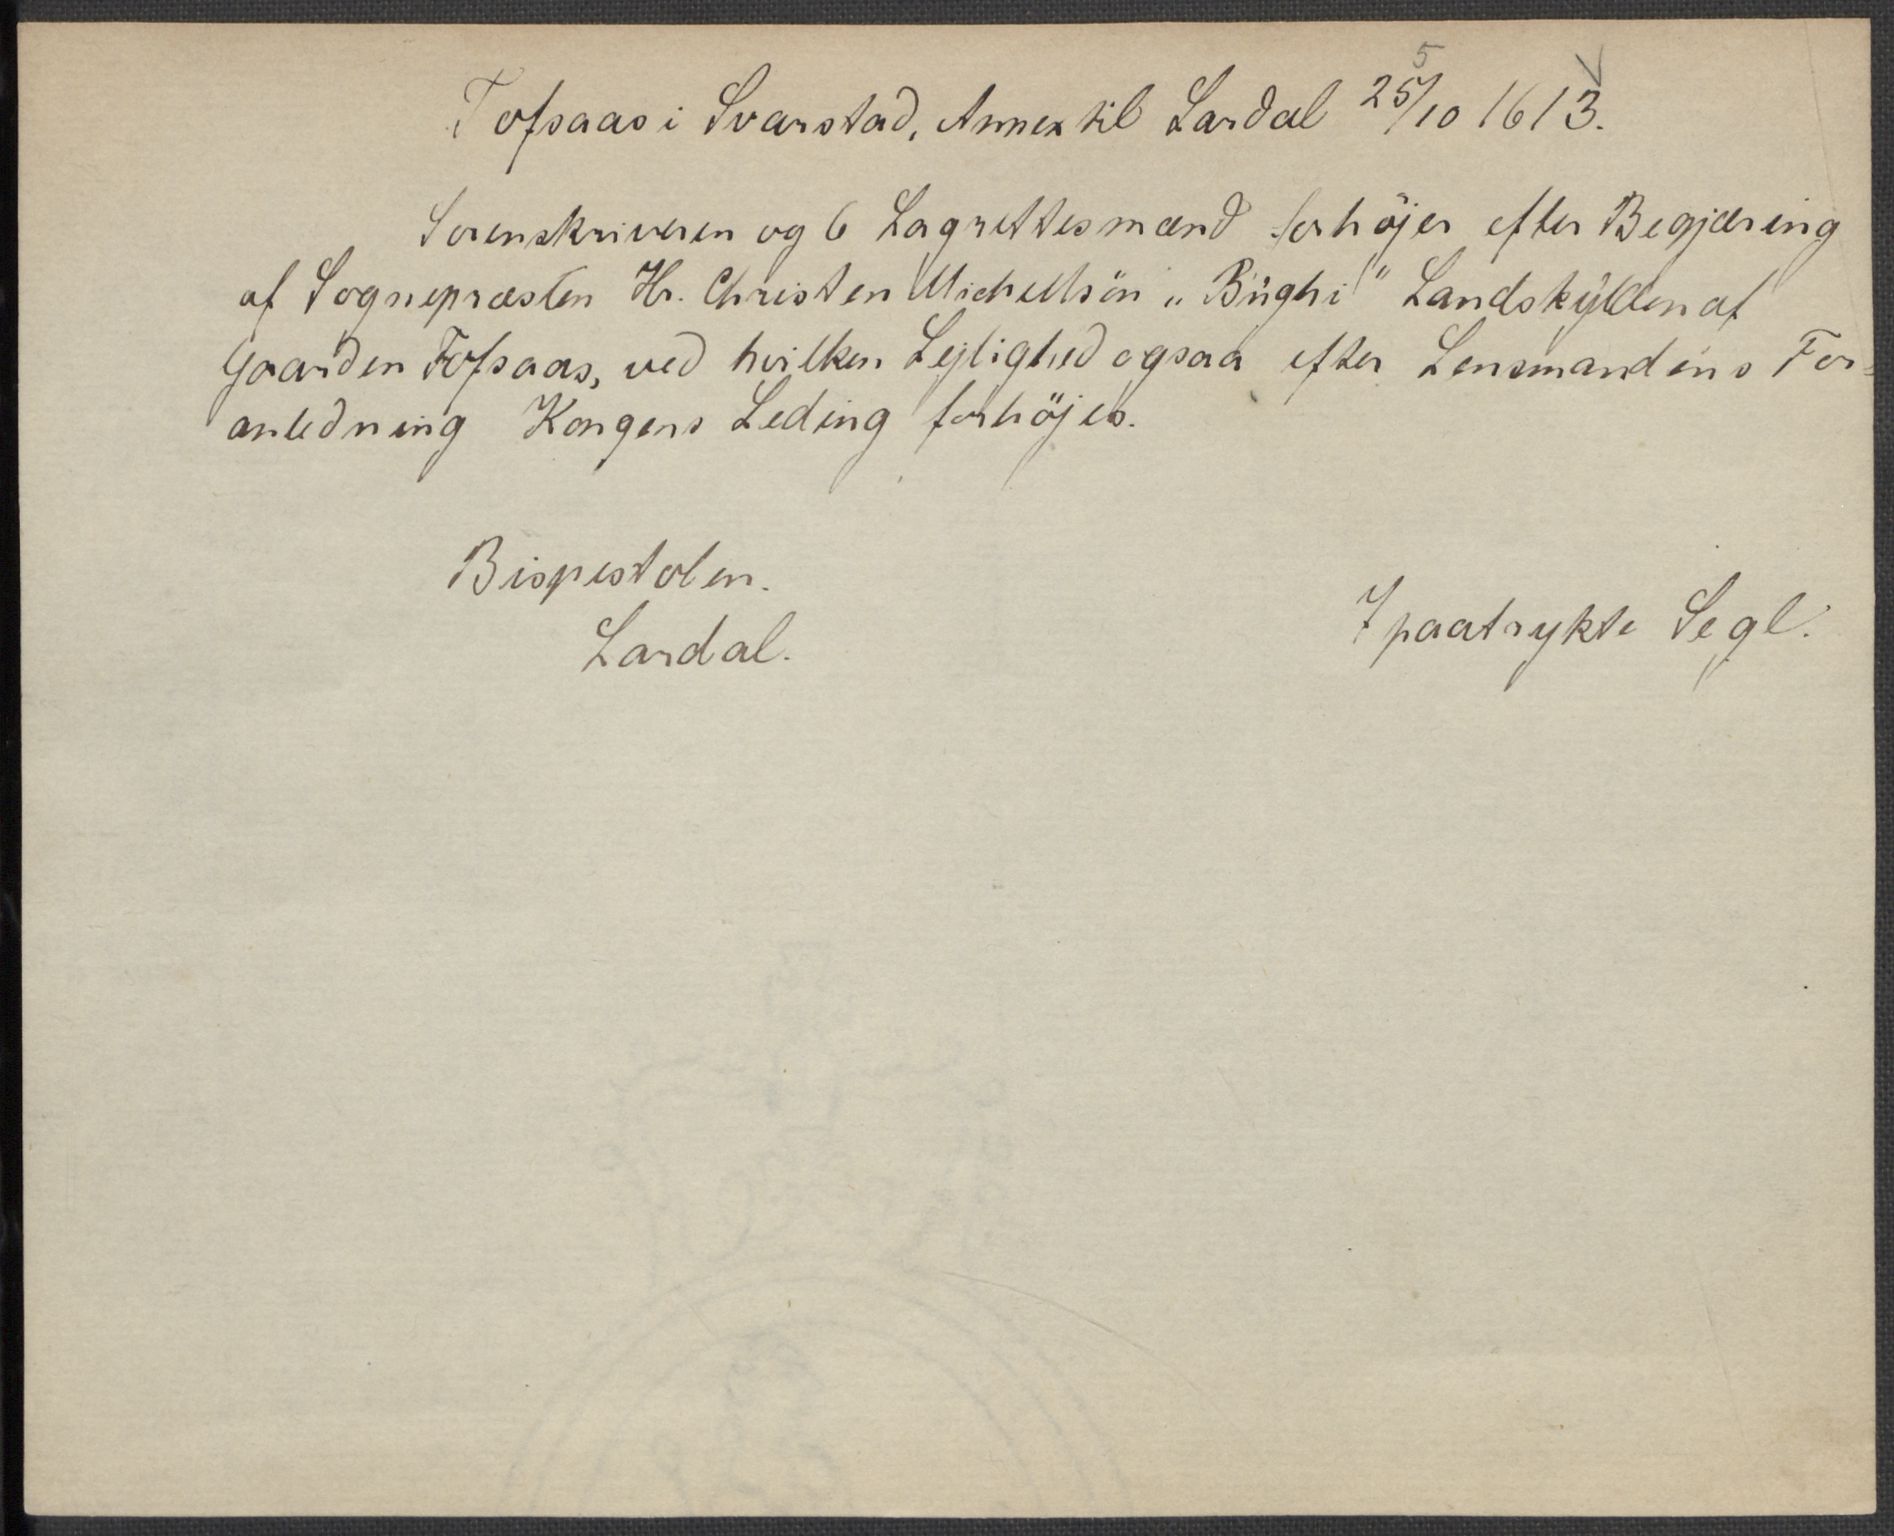 Tofsaas i Svarstad, Annex til Lardal 25/10 1613.
5
Sorenskriveren og 6 Lagrettesmænd forhöjer efter Begjæring
af Sognepræsten Hr. Christen Michellsön „Büghi" Landskÿlden af
Gaarden Tofsaas, ved hvilken Lejlighed ogsaa efter Lensmandens For=
anledning Kongens Leding forhöjes.
Bispestolen.
Lardal.
7 paatrykte Segl.